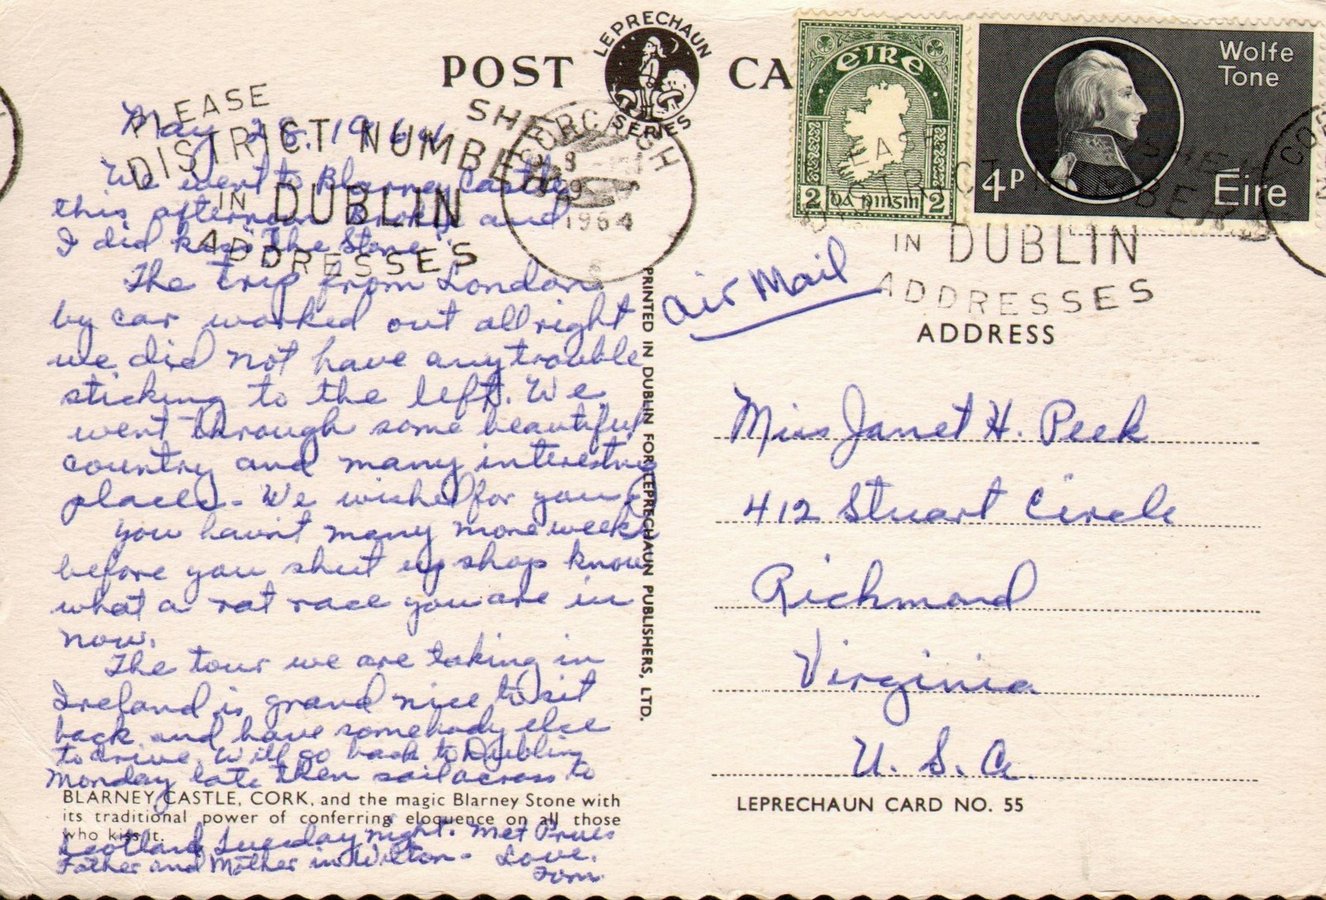 POST CA
LEPRECHAUN
SERIES
EIRE
2 2
Wolfe
Tone
4P Éire
PLEASE
DISTRICT NUMBE
IN DUBLIN
ADDRESSES
1964
IN DUBLIN
ADDRESSES
May 28. 1964
We went to Blarney Castle
this afternoon and
I did kiss "The Stone".
The trip from London
by car worked out allright
we did not have any trouble
sticking to the left. We
went through some beautiful
country and many interesting
places - We wished for you.
You havnt many more weeks
before you shut up shop know
what a rat race you are in
now.
The tour we are taking in
Ireland is grand nice to sit
back and have somebody else
to drive. Will go back to Dublin
Monday late then sail across to
BLARNEY CASTLE, CORK, and the magic Blarney Stone with
its traditional power of conferring eloquence on all those
who kiss it.
Scotland Tuesday night. Met Prues
Father and Mother in Wilton - Love.
Tom
PRINTED IN DUBLIN FOR LEPRECHAUN PUBLISHERS, LTD.
air Mail
ADDRESS
Miss Janet H. Peek
412 Stuart Circle
Richmond
Virginia
U. S. A.
LEPRECHAUN CARD NO. 55